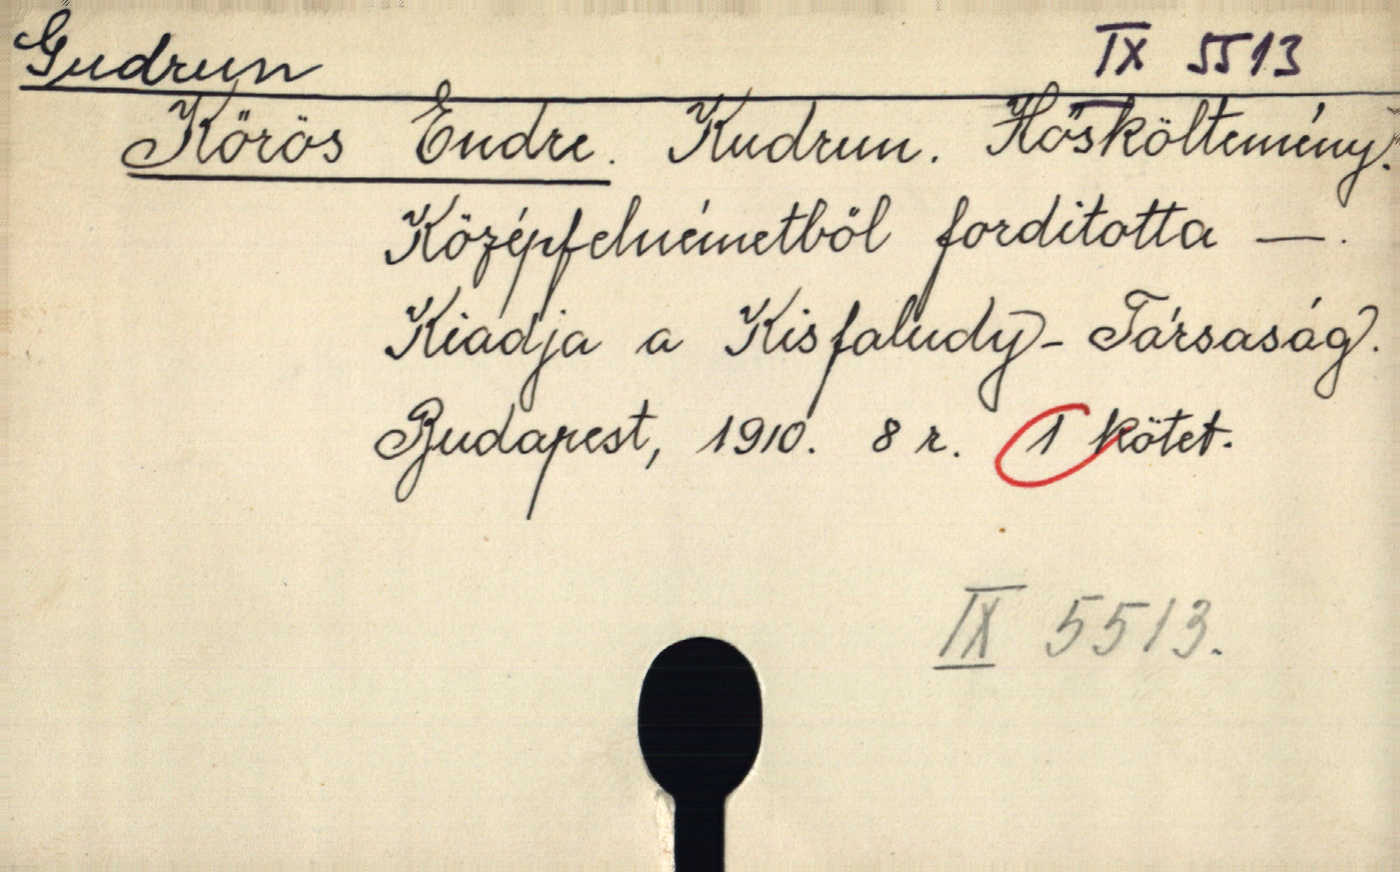 Gudrun IX 5513
Kőrös Endre. Kudrun. Hősköltemény.
Középfelnémetből forditotta —.
Kiadja a Kisfaludy-Társaság.
Budapest, 1910. 8 r. 1 kötet.
IX 5513.